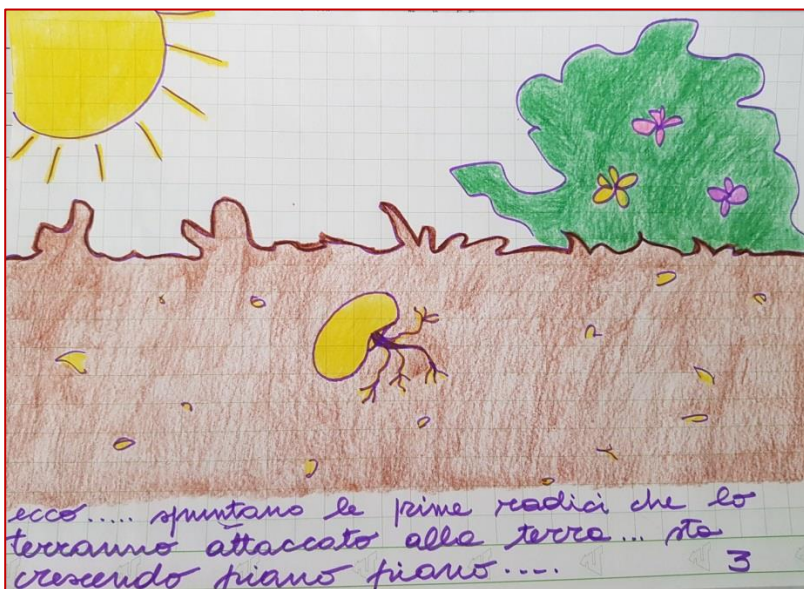 ecco..... spuntano le prime radici che lo
terranno attaccato alla terra... sta
crescendo piano piano.... 3